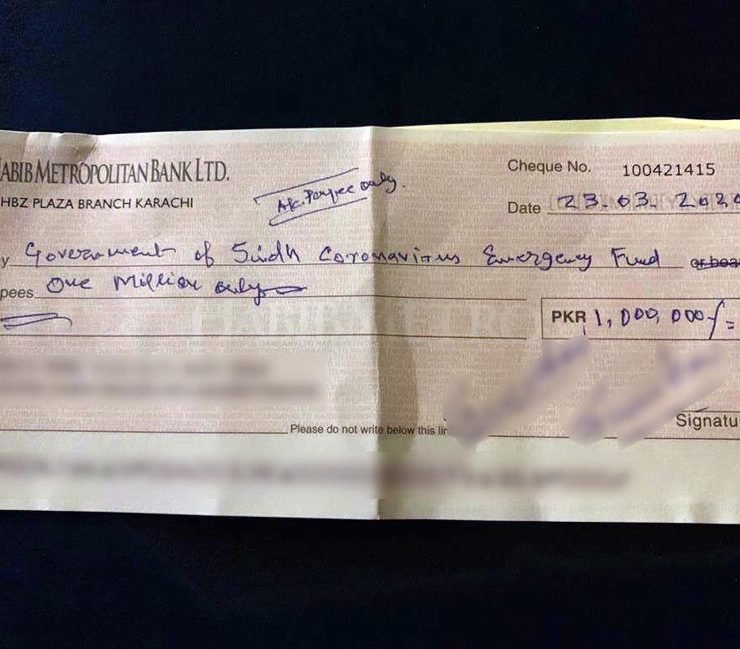 ABIB METROPOLITAN BANK LTD.
HBZ PLAZA BRANCH KARACHI
A/c. Payee only.
Cheque No. 100421415
Date 23.03.2020
y Government of Sindh Coronavirus Emergency Fund or bea
pees One Million only
PKR 1,000,000/=
Please do not write below this lin
Signatu